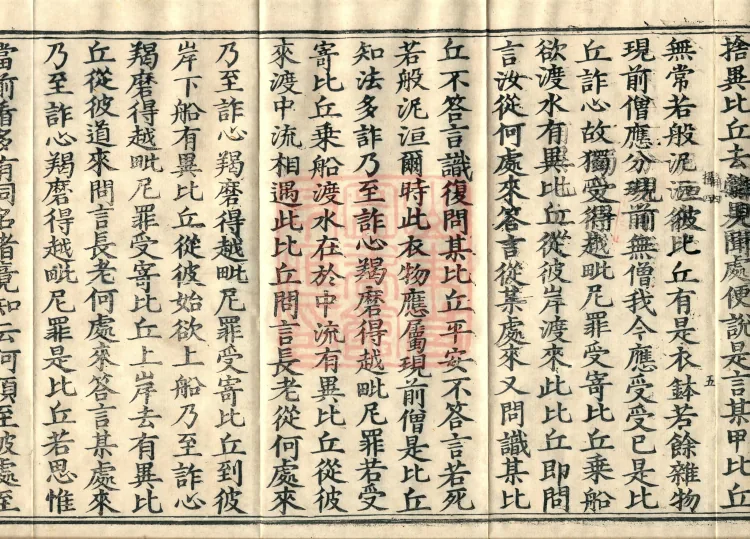 捨異比丘去離異聞處便說是言某甲比丘
無常若般泥洹彼比丘有是衣鉢若餘雜物
現前僧應分現前無僧我今應受受已是比
丘詐心故獨受得越毗尼罪受寄比丘乘船
欲渡水有異比丘從彼岸渡來此比丘即問
言汝從何處來答言從某處來又問識某比
丘不答言識復問某比丘平安不答言若死
若般泥洹爾時此衣物應屬現前僧是比丘
知法多詐乃至詐心羯磨得越毗尼罪若受
寄比丘乘船渡水在於中流有異比丘從彼
來渡中流相遇此比丘問言長老從何處來
乃至詐心羯磨得越毗尼罪受寄比丘到彼
岸下船有異比丘從彼始欲上船乃至詐心
羯磨得越毗尼罪受寄比丘上岸去有異比
丘從彼道來問言長老何處來答言某處來
乃至詐心羯磨得越毗尼罪是比丘若思惟
當前看多有同名者竟知云何須至彼處至
五